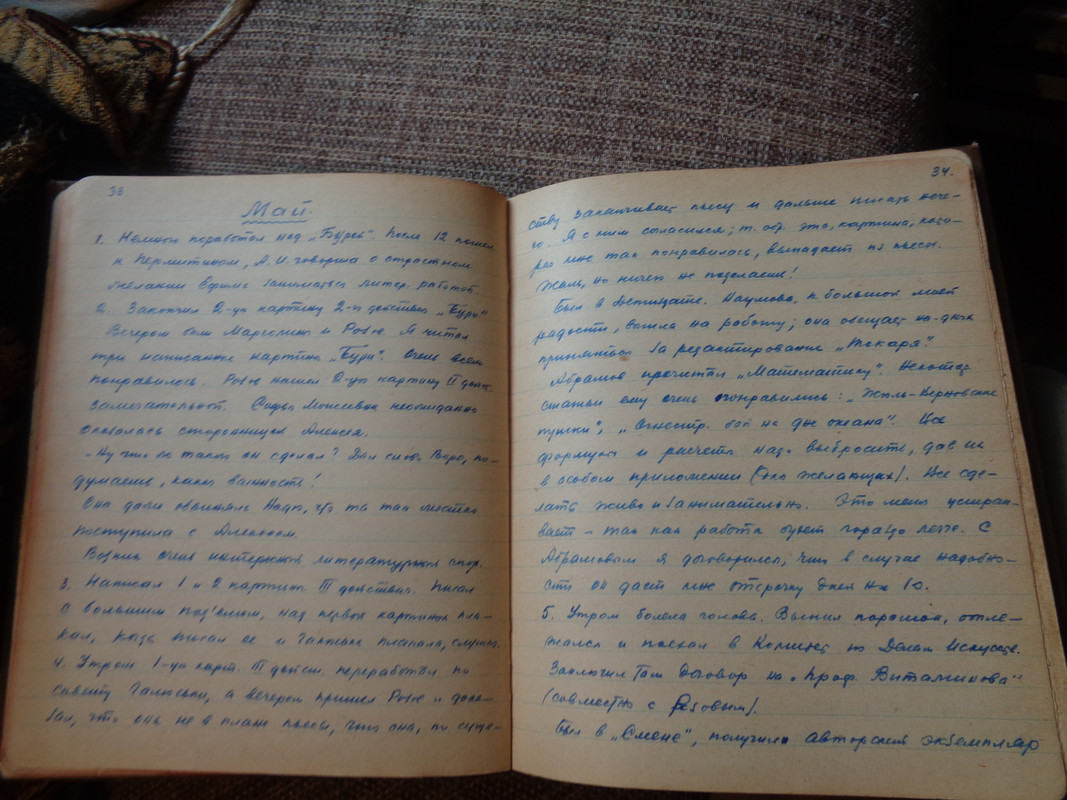 33
Май.
1. Немного поработал над „Бурей". После 12 пошел
к Пермитиным, А.И. говорила о страстном
желании Ефима заниматься литер. работой.
2. Закончил 2-ую картину 2-го действия „Бури"
Вечером были и Розов. Я читал
три написанные картины „Бури". Очень всем
понравилось. Розов нашел 2-ую картину II действ.
замечательной. Моисеевна неожиданно
оказалась сторонницей Алексея.
– Ну что он такого он сделал? Дал слово Вере, по-
думаешь, какая важность!
Она даже обвиняла Надю, что та так жестоко
поступила с Алексеем.
Возник очень интересный литературный спор.
3. Написал 1 и 2 картины III действия. Писал
с большим под'емом, над первой картиной пла-
кал, когда писал ее и Галюська плакала, слушая.
4. Утром 1-ую карт. III действ. переработал по
совету Галюськи, а вечером пришел Розов и дока-
зал, что она не в плане пьесы, что она, по суще-
34.
ству заканчивает пьесу и дальше писать нече-
го. Я с ним согласился; т. обр. эта, картина, кото-
рая мне так понравилась, выпадает из пьесы.
Жаль, но ничего не поделаешь!
Был в Детиздате. Наумова, к большой моей
радости, вышла на работу; она обещает на-днях
приняться за редактирование „Токаря".
Абрамов прочитал „Математику". Некотор.
статьи ему очень понравились: „Жюль-Верновские
пушки", „Огнестр. бой на дне океана". Все
формулы и расчеты надо выбросить, дав их
в особом приложении (для желающих). Все сде-
лать живо и занимательно. Это меня устраи-
вает – так как работа будет гораздо легче. С
Абрамовым я договорился, что в случае надобно-
сти он даст мне отсрочку дней на 10.
5. Утром болела голова. Выпил порошок, отле-
жался и поехал в Комитет по Делам Искусств.
Заключил там договор на „Проф. Виталинова"
(совместно с Розовым).
Был в „Смене", получил авторский экземпляр